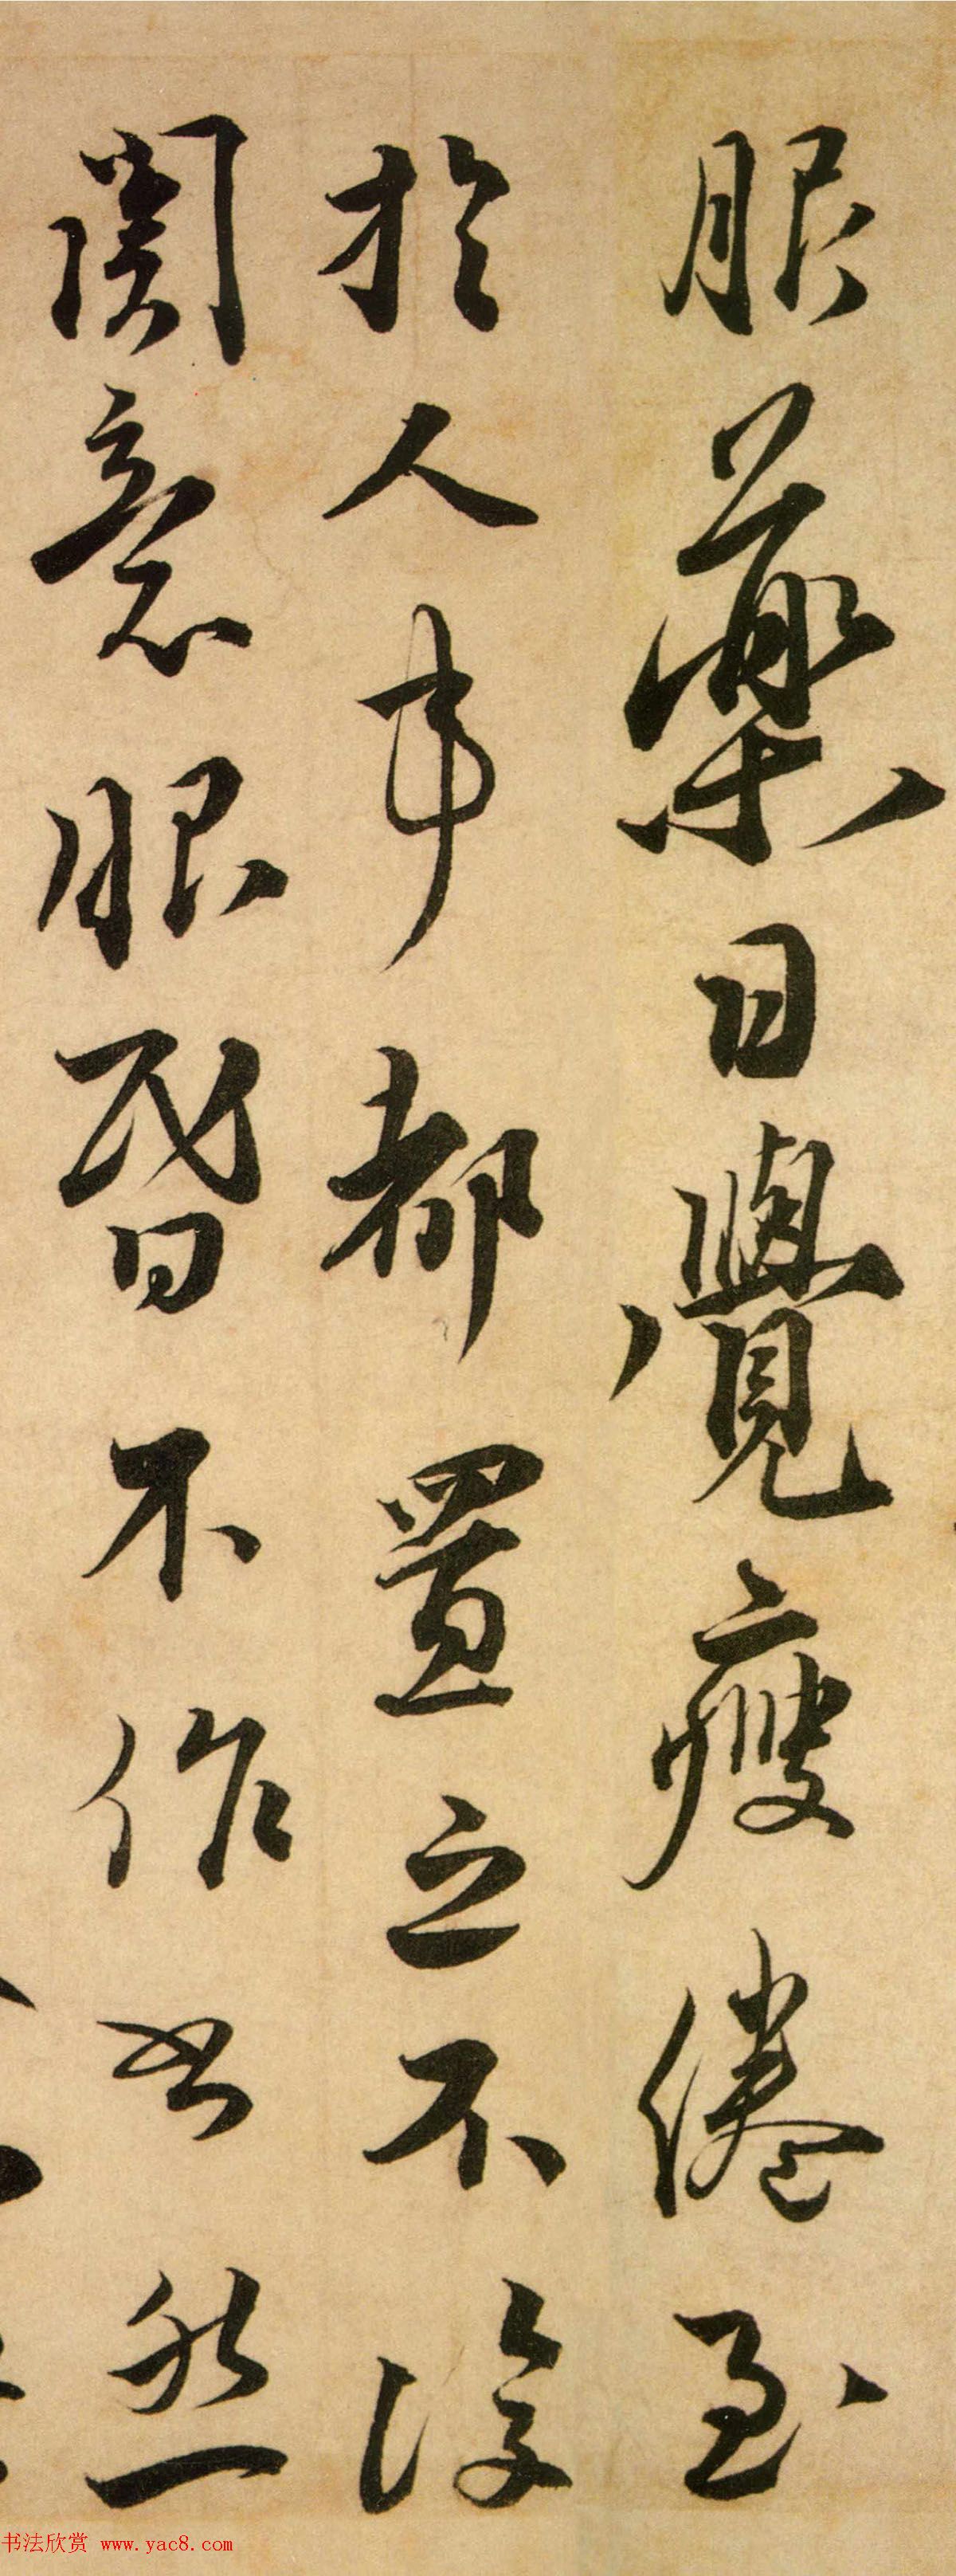 服藥日覺瘦倦至
於人事都置之不復
關意眼昏不作書然
书法欣赏 www.yac8.com